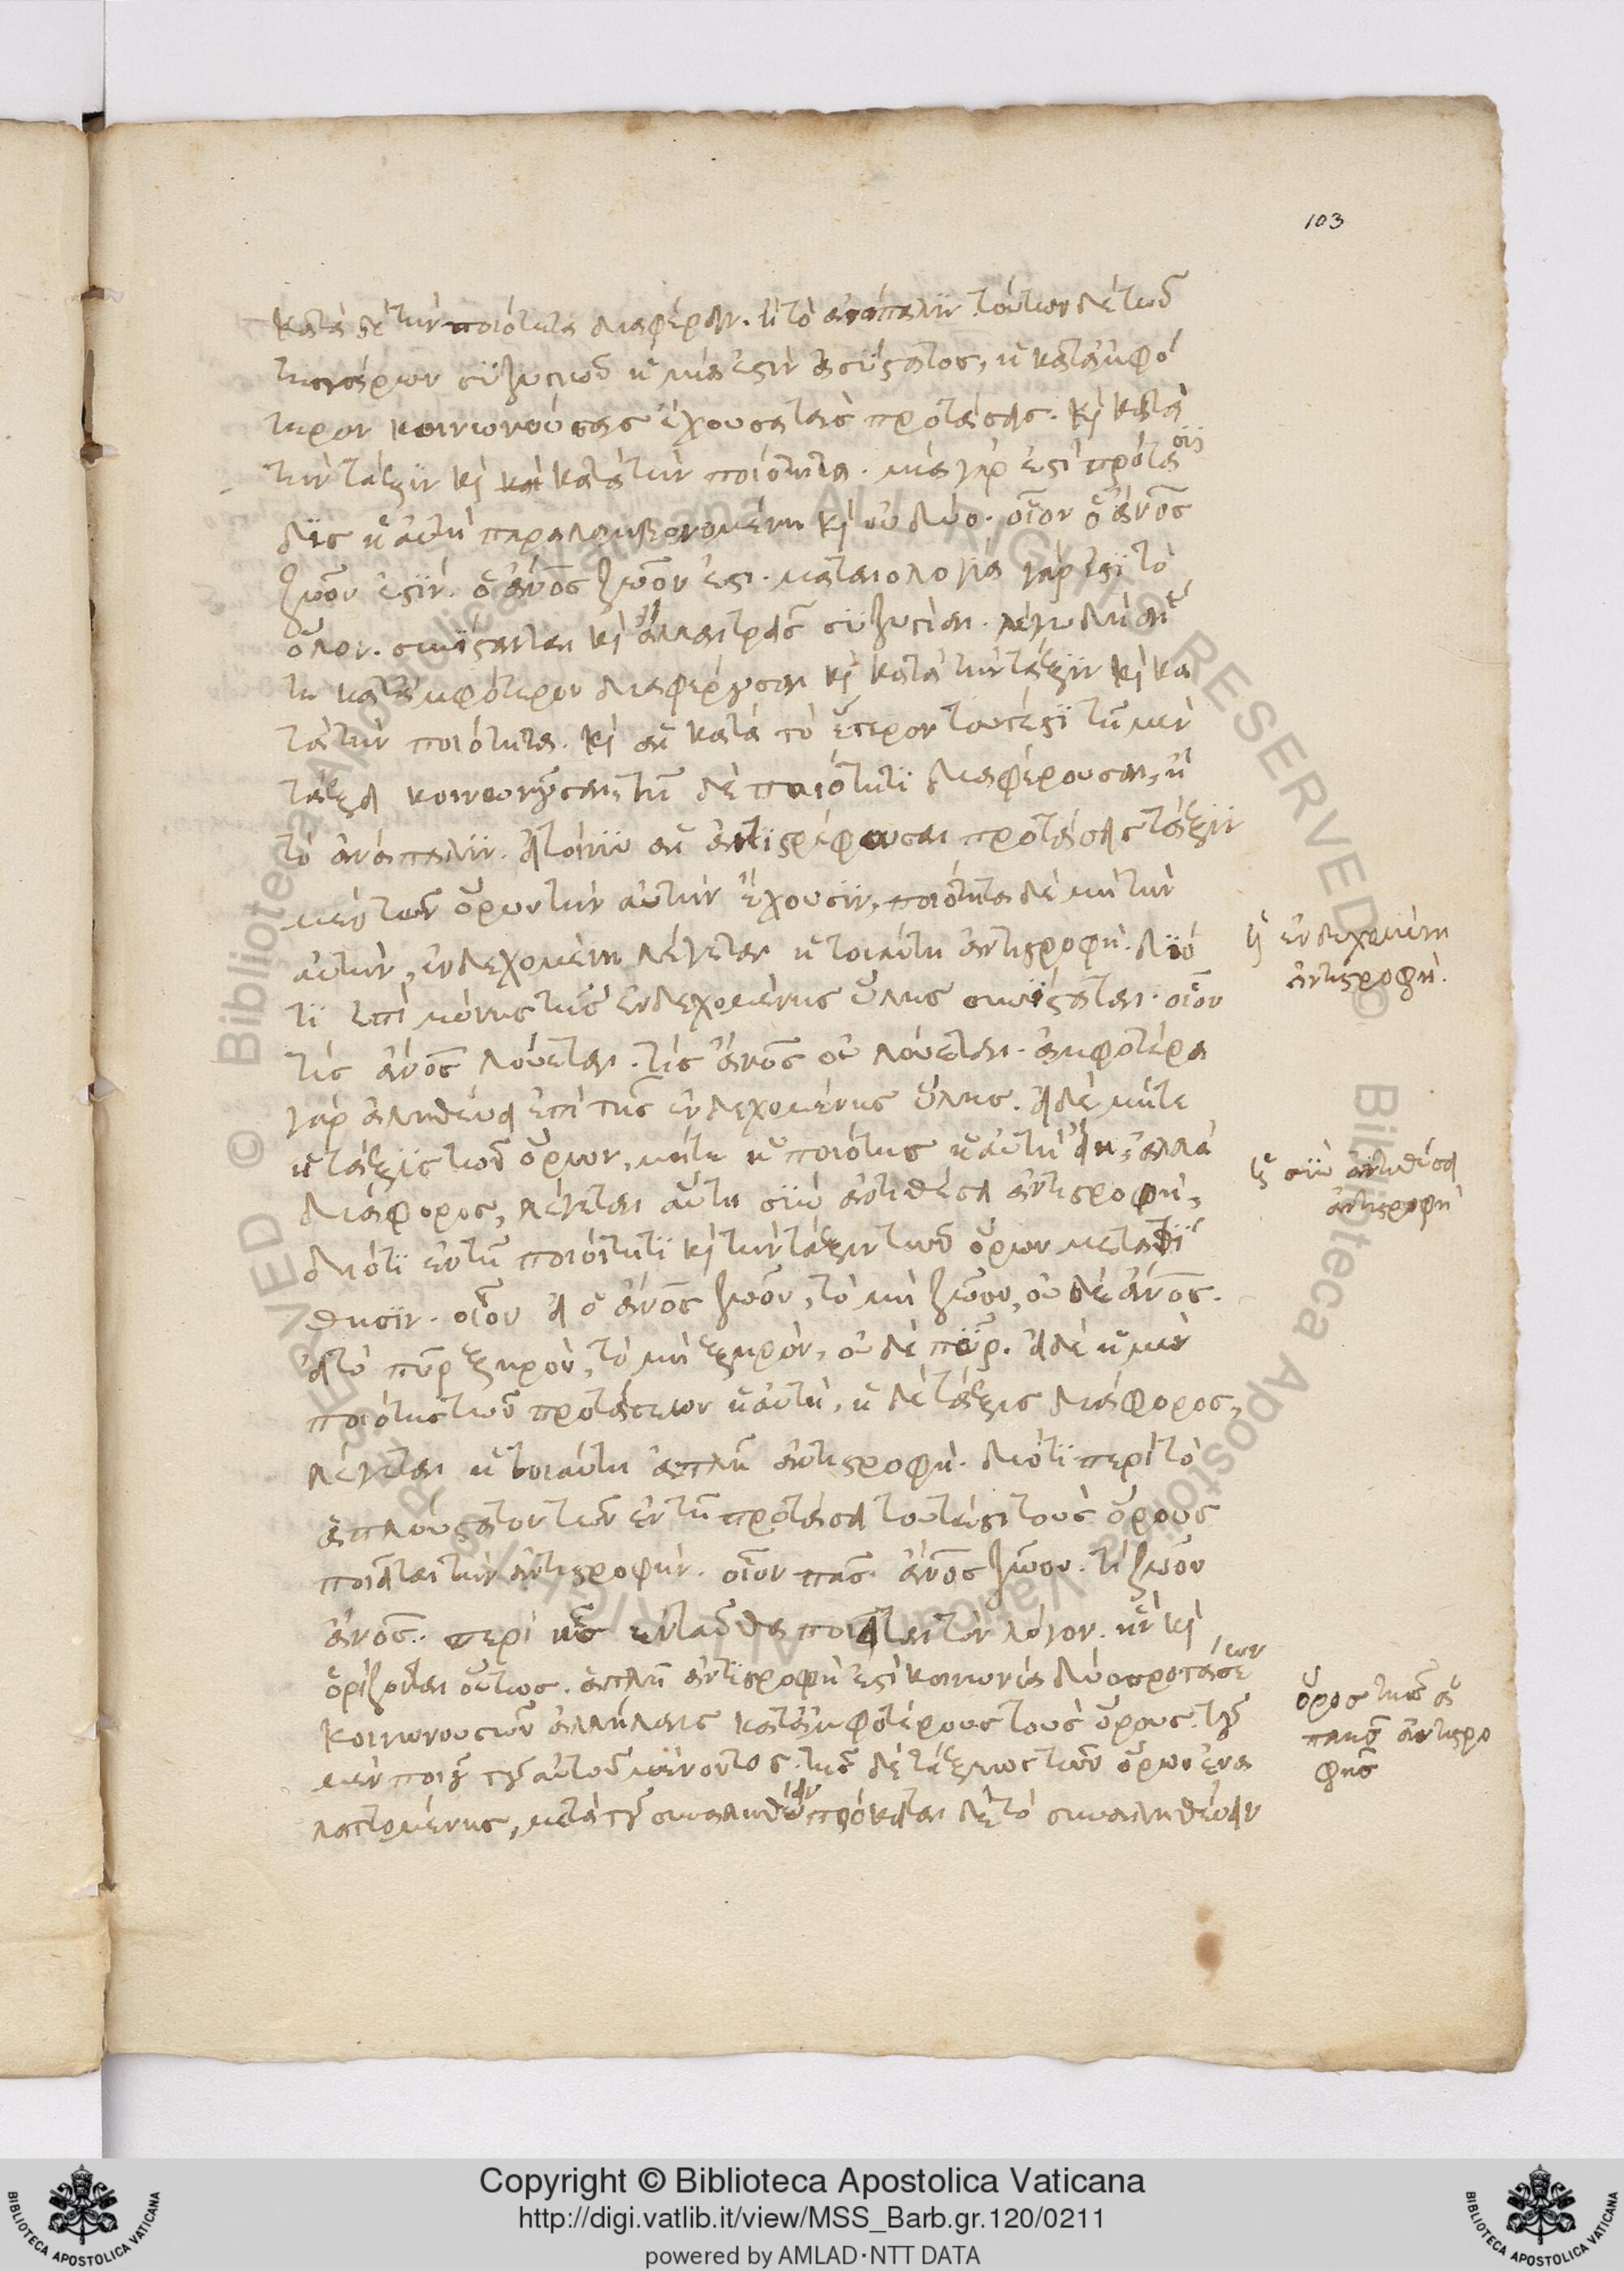 103
κατὰ δὲ τὴν ποιότητα διαφέρειν. ἢ τὸ ἀνάπαλιν. τούτων δὲ τῶν
τεσσάρων συζυγιῶν ἡ μία ἐστὶν ἀσύστατος, ἡ κατ' ἀμφό
τερον κοινωνούσας ἔχουσα τὰς προτάσεις. κὶ κατὰ
τὴν τάξιν κὶ κατὰ τὴν ποιότητα. μία γάρ ἐστι πρότασις
δὶς ἡ αὐτὴ παραλαμβανομένη κὶ οὐ δύο. οἷον ὁ ἄνος
ζῶον ἐστίν. ὁ ἄνος ζῶον ἐστι. ματαιολογία γάρ ἐστι τὸ
ὅλον. συνίστανται κὶ αἱ ἄλλαι τρεῖς συζυγίαι. λέγω δὴ αἵ
τε κατ' ἀμφότερον διαφέρουσαι κὶ κατὰ τὴν τάξιν κὶ κα
τὰ τὴν ποιότητα. κὶ αἱ κατὰ τὸ ἕτερον τουτέστι τῆ μὲν
τάξει κοινωνοῦσαι, τῆ δὲ ποιότητι διαφέρουσαι, ἢ
τὸ ἀνάπαλιν. εἰ τοίνυν αἱ ἀντιστρέφουσαι προτάσεις τάξιν
μὲν τῶν ὅρων τὴν αὐτὴν ἔχουσιν, ποιότητα δὲ μὴ τὴν
αὐτὴν, ἐνδεχομένη λέγεται ἡ τοιαύτη ἀντιστροφή. διό
τι ἐπὶ μόνης τῆς ἐνδεχομένης ὕλης συνίσταται. οἷον
τὶς ἄνος λούεται. τὶς ἄνος οὐ λούεται. ἀμφότερα
γὰρ ἀληθεύει ἐπὶ τῆς ἐνδεχομένης ὕλης. εἰ δὲ μήτε
ἡ τάξις τῶν ὅρων, μήτε ἡ ποιότης ἡ αὐτὴ εἴη, ἀλλὰ
διάφορος, λέγεται αὕτη σὺν ἀντιθέσει ἀντιστροφὴ,
διότι ἐν τῆ ποιότητι κὶ τὴν τάξιν τῶν ὅρων μετατί
θησιν. οἷον εἰ ὁ ἄνος ζῶον, τὸ μὴ ζῶον, οὐδὲ ἄνος.
εἰ τὸ πῦρ ξηρὸν, τὸ μὴ ξηρὸν, οὐδὲ πῦρ. εἰ δὲ ἡ μὲν
ποιότης τῶν προτάσεων ἡ αὐτὴ, ἡ δὲ τάξις διάφορος,
λέγεται ἡ τοιαύτη ἁπλῆ ἀντιστροφή. διότι περὶ τὸ
ἁπλούστατον τῶν ἐν τῆ προτάσει τουτέστι τοὺς ὅρους
ποιεῖται τὴν ἀντιστροφήν. οἷον πᾶς ἄνος ζῶον. τὶ ζῶον
ἄνος. περὶ ἧς ἐνταῦθα ποιεῖται τὸν λόγον. ἣν κὶ
ὁρίζονται οὕτως. ἁπλῆ ἀντιστροφή ἐστι κοινωνία δύο προτάσεων
κοινωνουσῶν ἀλλήλαις κατ' ἀμφοτέρους τοὺς ὅρους. τοῦ
μὲν ποιοῦ τοῦ αὐτοῦ μένοντος. τῆς δὲ τάξεως τῶν ὅρων ἐνα
λαττομένης, μετὰ τοῦ συναληθεύειν πρόκειται δὲ τὸ συναληθεύειν
ἡ ἐνδεχομένη
ἀντιστροφή.
ἡ σὺν ἀντιθέσει
ἀντιστροφὴ
ὅρος τῆς ἁ
πλῆς ἀντιστρο
φῆς
Copyright © Biblioteca Apostolica Vaticana
http://digi.vatlib.it/view/MSS_Barb.gr.120/0211
powered by AMLAD·NTT DATA